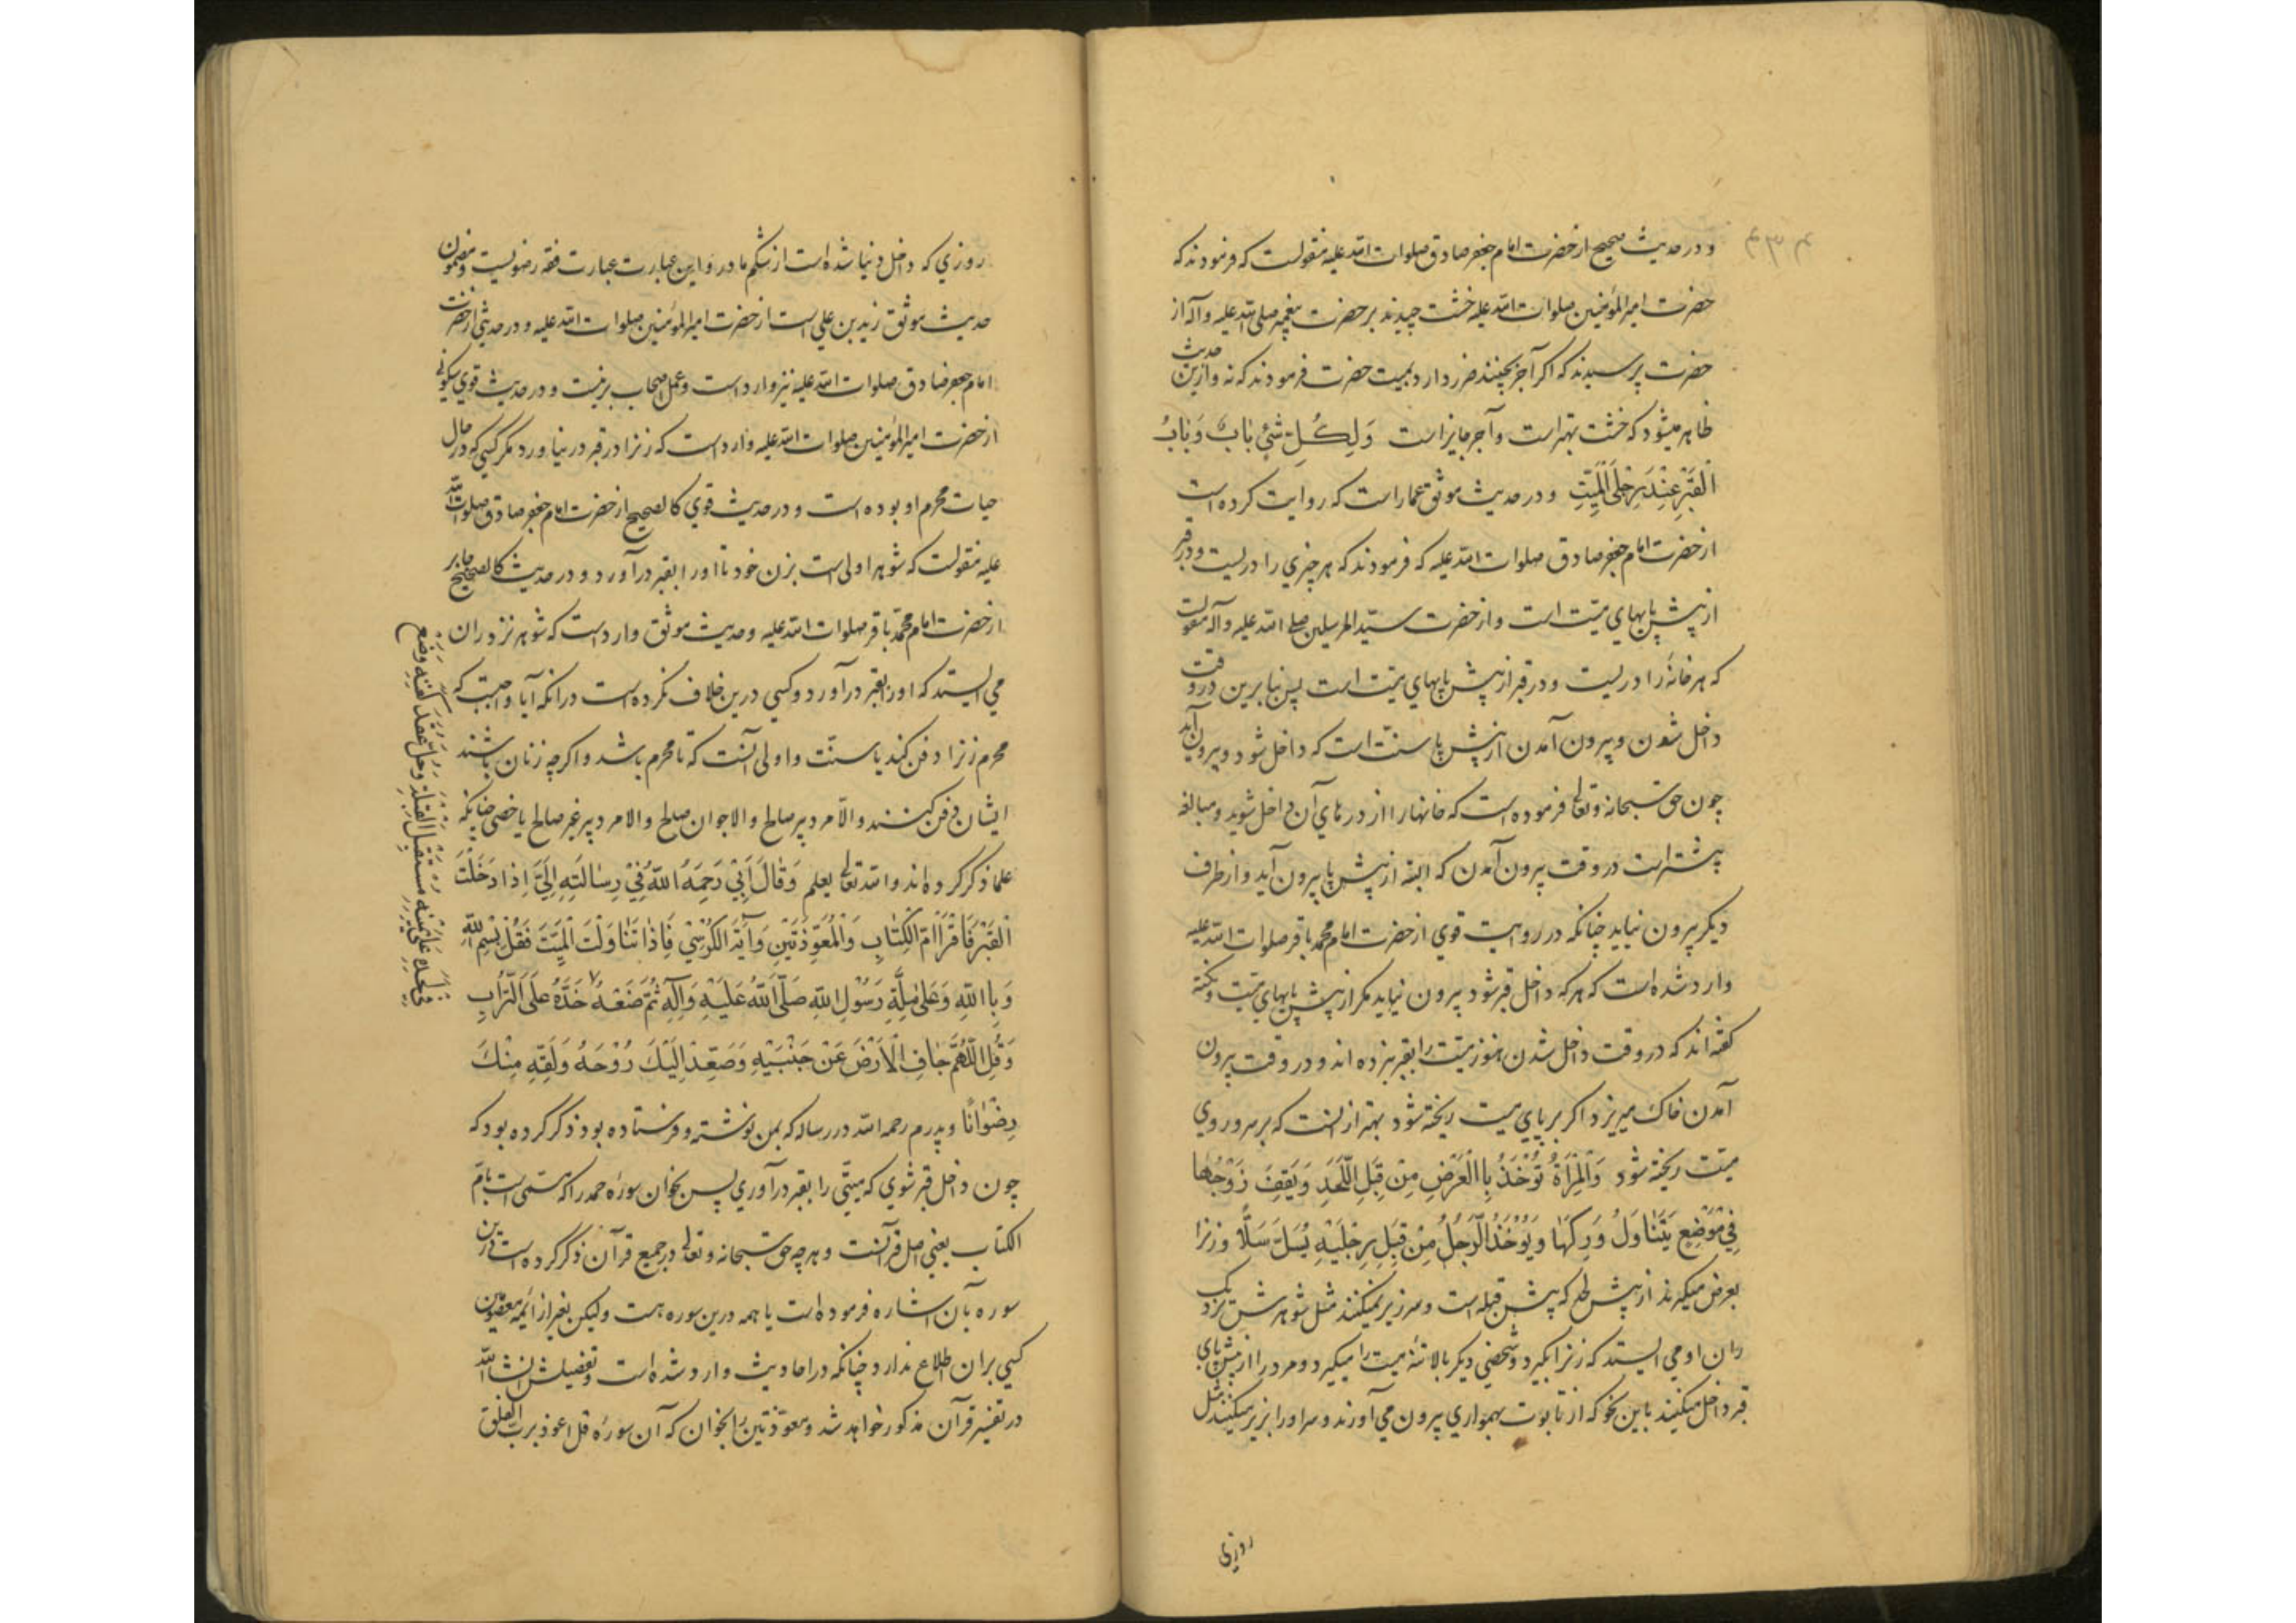 و در حدیث صحیح از حضرت امام جعفر صادق صلوات الله علیه منقولست که فرمودند که
حضرت امیر المؤمنین صلوات الله علیه خشت چیدند بر حضرت پیغمبر صلی الله علیه وآله از
حضرت پرسیدند که اکر آجر بچینند ضرر دارد بمیت حضرت فرمودند که نه و ازین حدیث
ظاهر میشود که خشت بهتر است و آجر جایز است وَلِكُلِّ شَيْءٍ بَابٌ وَبَابُ
الْقَبْرِ عِنْدَ رِجْلَيِ الْمَيِّتِ و در حدیث موثق عمار است که روایت کرده است
از حضرت امام جعفر صادق صلوات الله علیه که فرمودند که هر چیزي را دریست و در قبر
از پیش پاپهاي میّت است و از حضرت سیّد المرسلین صلی الله علیه وآله منقولست
که هر خانه را دریست و در قبر از پیش پاپهاي میّت است پس بنا برین در وقت
داخل شدن و بیرون آمدن از پیش پا سنت است که داخل شود و بیرون آید
چون حق سبحانه و تعالی فرموده است که خانهارا از درهاي آن داخل شوید و مبالغه
بیشتر است در وقت بیرون آمدن که البته از پیش پا بیرون آید و از طرف
دیکر بیرون نیاید چنانکه در روایت قوي از حضرت امام محمد باقر صلوات الله علیه
وارد شده است که هر که داخل قبر شود بیرون نیاید مکر از پیش پاپهاي میّت و نکته
کفته اند که در وقت داخل شدن هنوز میّت را بقبر نبرده اند و در وقت بیرون
آمدن خاك میریزد اکر بر پاي میت ریخته شود بهتر از انست که بر سر و روي
میّت ریخته شود وَالْمَرْأَةُ تُؤْخَذُ بِالْعَرْضِ مِنْ قِبَلِ اللَّحْدِ وَيَقِفُ زَوْجُهَا
فِي مَوْضِعٍ يَتَنَاوَلُ وَرِكَهَا وَيُؤْخَذُ الرَّجُلُ مِنْ قِبَلِ رِجْلَيْهِ يُسَلُّ سَلًّا و زنرا
بعرض میکیرند از پیش لحد که پیش قبله است و سرزیر نمیکنند مثل شوهرش نزدیک
ران او می ایستد که زنرا بکیرد و شخصی دیکر بالا تنهٔ میت را میکیرد و مرد را از پیش پاي
قبر داخل میکنند باین نحو که از تابوت بهمواري بیرون می آورند و سر او را بزیر میکنند مثل
روزي
روزي که داخل دنیا شده است از شکم مادر و این عبارت عبارت فقه رضویست و مضمون
حدیث موثق زید بن علی است از حضرت امیر المؤمنین صلوات الله علیه و در حدیثی از حضرت
امام جعفر صادق صلوات الله علیه نیز وارد است و عمل اصحاب برینست و در حدیث قوي سکونی
از حضرت امیر المؤمنین صلوات الله علیه وارد است که زنرا در قبر در نیاورد مکر کسی که در حال
حیات محرم او بوده است و در حدیث قوي کالصحیح از حضرت امام جعفر صادق صلوات الله
علیه منقولست که شوهر اولی است بزن خود تا او را بقبر در آورد و در حدیث کالصحیح جابر
از حضرت امام محمّد باقر صلوات الله علیه و حدیث موثق وارد است که شوهر نزد ران
می ایستد که او را بقبر در آورد و کسی درین خلاف نکرده است در انکه آیا واجبست که
محرم زنرا دفن کند یا سنّت و اولی آنست که تا محرم باشد و اکر چه زنان باشند
ایشان دفن کنند و الّا مرد پیر صالح و الا جوان صالح و الا مرد پیر غیر صالح یا خصی چنانکه
علما ذکر کرده اند و الله تعالی یعلم وَقَالَ أَبِي رَحِمَهُ اللَّهُ فِي رِسَالَتِهِ إِلَيَّ إِذَا دَخَلْتَ
الْقَبْرَ فَاقْرَأْ أُمَّ الْكِتَابِ وَالْمُعَوِّذَتَيْنِ وَآيَةَ الْكُرْسِيِّ فَإِذَا تَنَاوَلْتَ الْمَيِّتَ فَقُلْ بِسْمِ اللَّهِ
وَبِاللَّهِ وَعَلَى مِلَّةِ رَسُولِ اللَّهِ صَلَّى اللَّهُ عَلَيْهِ وَآلِهِ ثُمَّ ضَعْهُ ٧ خَدَّهُ عَلَى التُّرَابِ
وَقُلِ اللَّهُمَّ جَافِ الْأَرْضَ عَنْ جَنْبَيْهِ وَصَعِّدْ إِلَيْكَ رُوحَهُ وَلَقِّهِ مِنْكَ
رِضْوَانًا و پدرم رحمه الله در رساله که بمن نوشته و فرستاده بود ذکر کرده بود که
چون داخل قبر شوي که میتّی را بقبر در آوري پس بخوان سورهٔ حمد را که مسمی است بامّ
الکتاب یعنی اصل قرآنست و هر چه حق سبحانه و تعالی در جمیع قرآن ذکر کرده است درین
سوره بآن اشاره فرموده است یا همه درین سوره هست ولیکن بغیر از ائمه معصومین
کسی بران اطلاع ندارد چنانکه در احادیث وارد شده است و تفصیلش انشاالله
در تفسیر قرآن مذکور خواهد شد و معوّذتین را بخوان که آن سورهٔ قل اعوذ برب الفلق
فِي لَحْدِهِ عَلَى يَمِينِهِ مُسْتَقْبِلَ الْقِبْلَةِ وَحُلَّ عُقَدَ كَفَنِهِ وَضَعْ